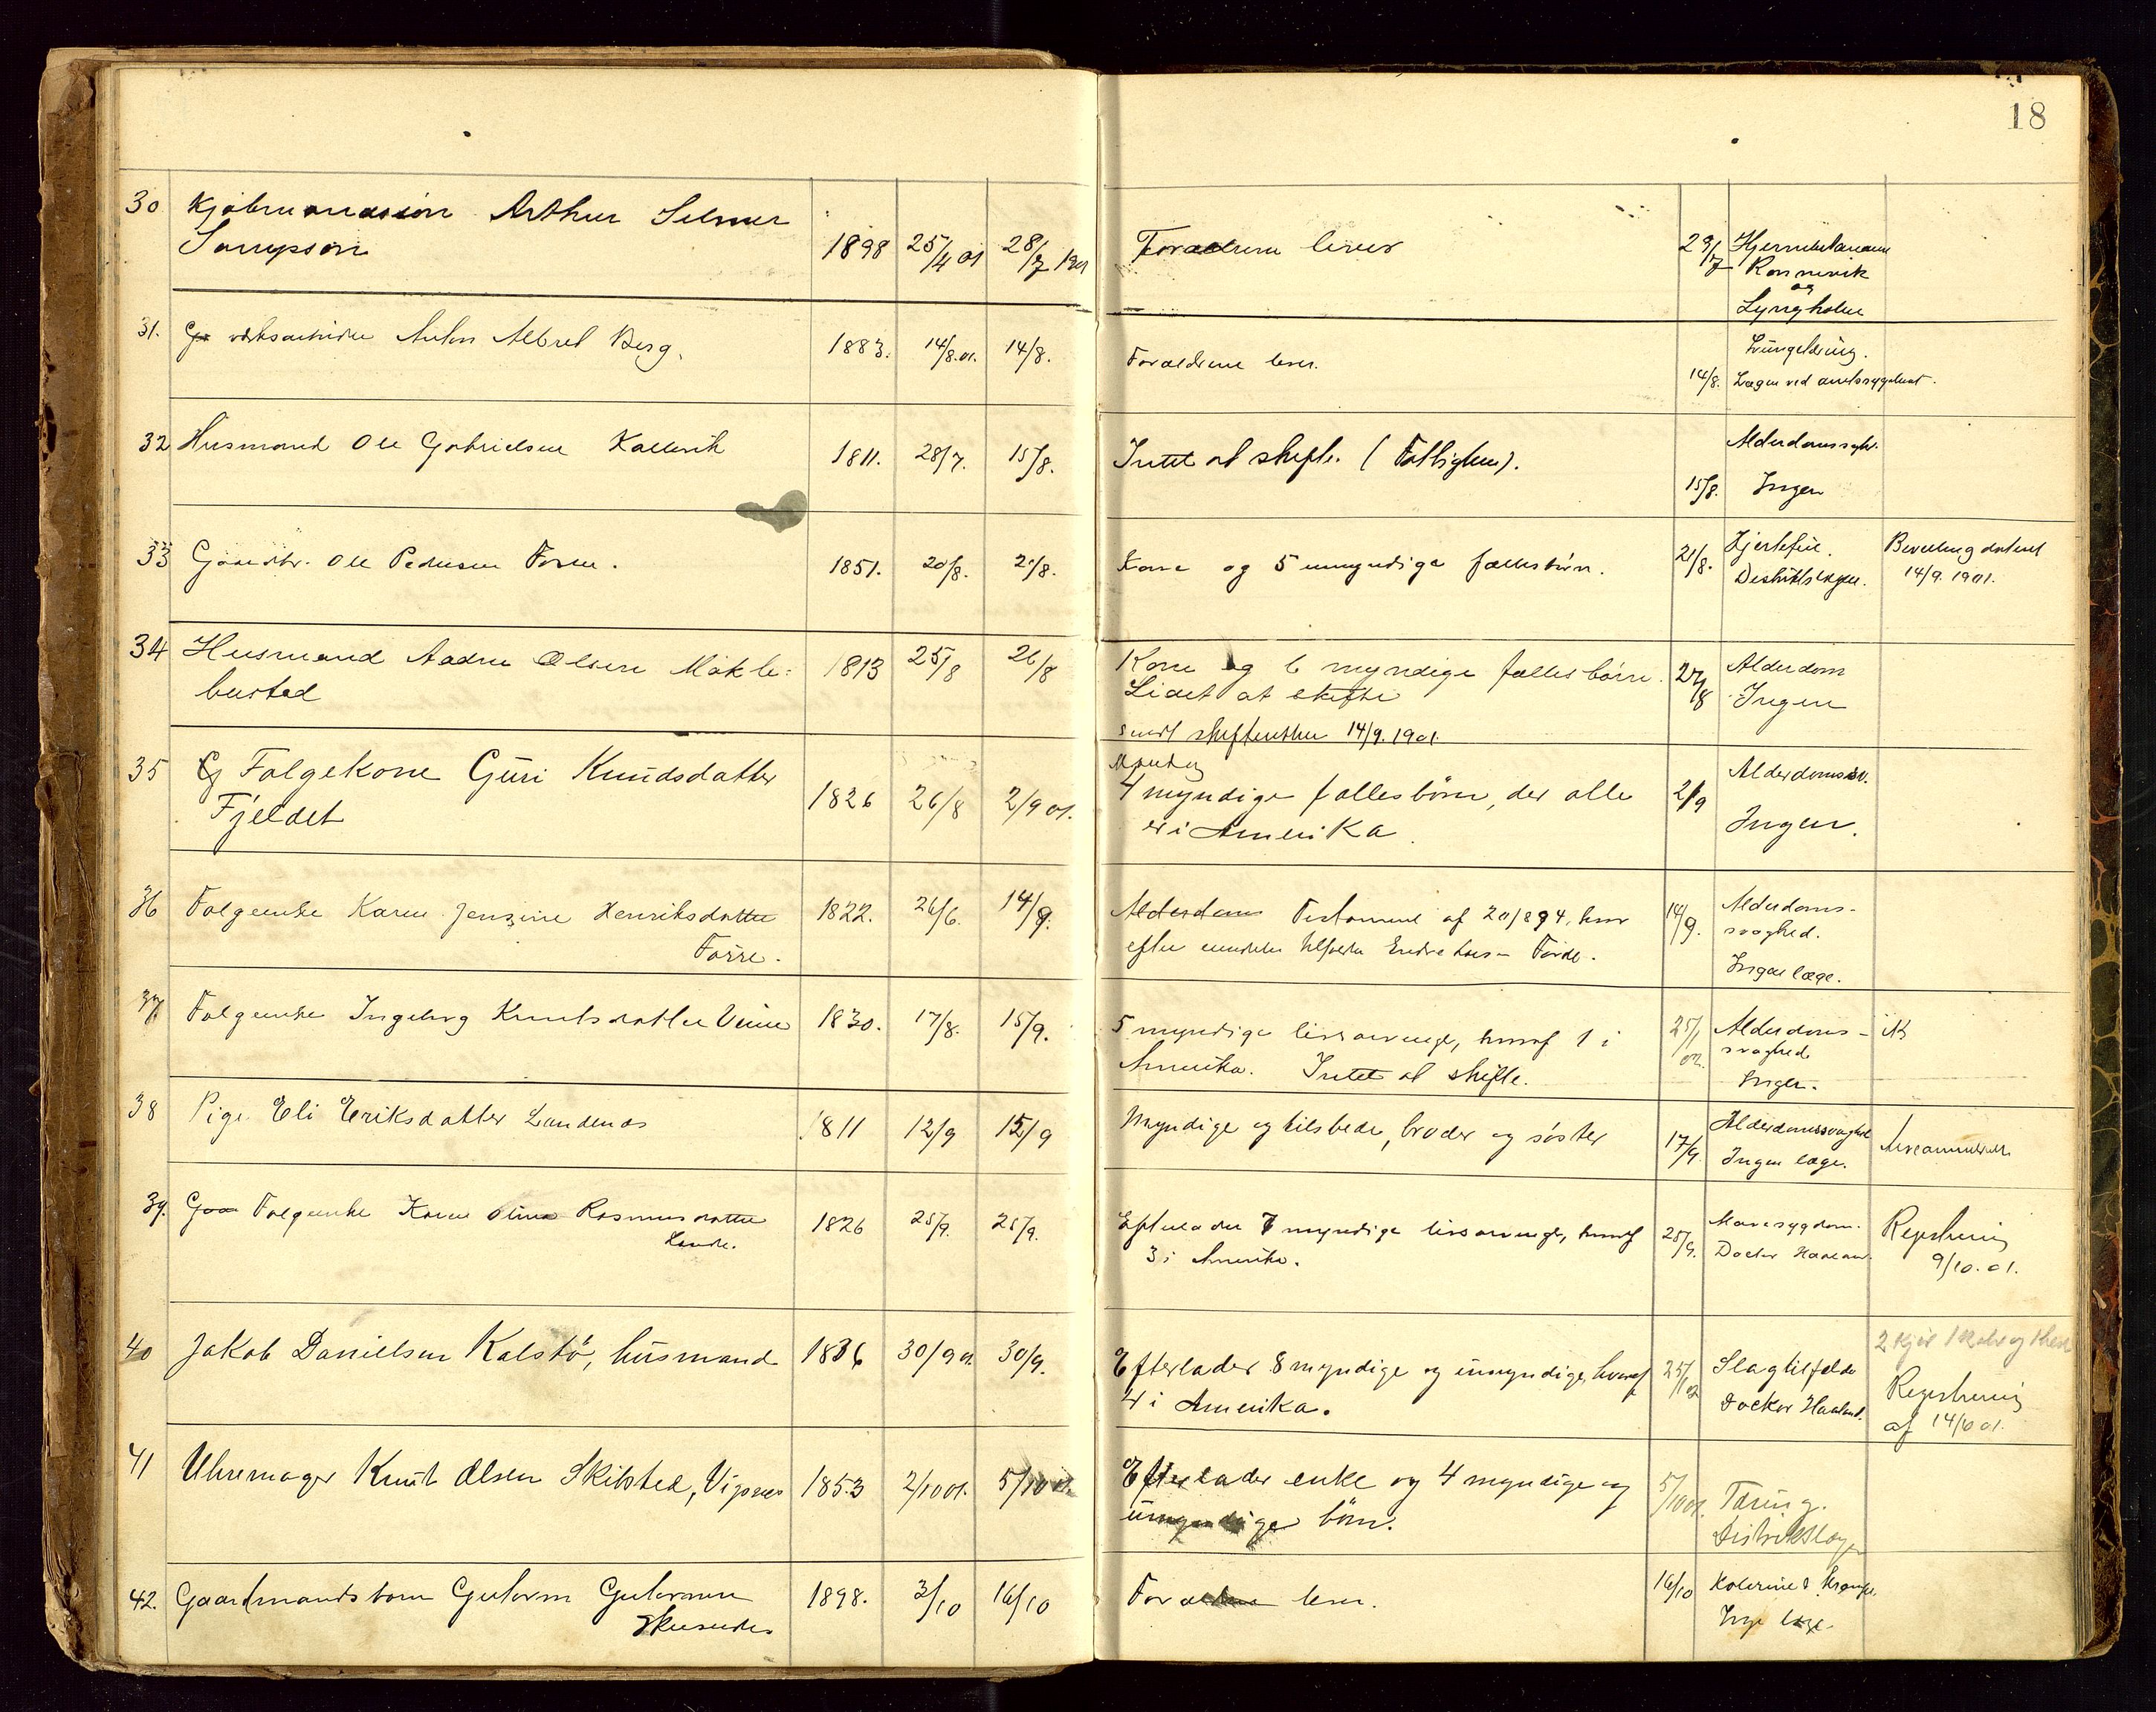 18
30 Kjøbmandssøn Arthur Selmer
Sampson 1898 25/4 01 28/7 1901 Forældrene lever 29/7 Hjernebetændelse
Rønnevik
og
Lyngholm
31. værksarbeider Anton Alfred Berg. 1883. 14/8.01. 14/8. Forældrene lever. Lungeblødning.
14/8. Lægen ved amtssygehuset.
32 Husmand Ole Gabrielsen Kallevik 1811. 28/7. 15/8. Intet at skifte. (Fattiglem). Alderdomssvagh.
15/8. Ingen
33 Gaardbr. Ole Pedersen 1851. 20/8. 21/8. Kone og 5 umyndige fællesbørn. 21/8. Hjertefeil. Bevilling dateret
Distriktslægen. 14/9. 1901.
34 Husmand Aadne Olsen Mökle-
bustad 1813 25/8 26/8 Kone og 6 myndige fællesbörn. 27/8 Alderdom
Lidet at skifte Ingen
sendt skifteretten 14/9. 1901.
35 Folgekone Guri Knudsdatter
Fjeldet 1826 26/8 2/9 01. 4 myndige fællesbörn, der alle 2/9 Alderdomssv.
er i Amerika. Ingen.
36 Folgeenke Karen Jensine Henriksdatter 1822. 26/6. 14/9. Alderdoms Testament af 20/8 94, hvor- 14/9. Alderdoms-
Førre. svaghed.
Ingen læge.
37 Folgeenke Ingeborg Knutsdatter 1830. 17/8. 15/9. 5 myndige livsarvinge, hvoraf 1 i 25/1 02. Alderdoms-
Amerika. Intet at skifte. svaghed
Ingen.
38 Pige Eli Eriksdatter Landenes 1811 12/9 15/9 Myndige og tilstede, broder og søster 17/9. Alderdomssvaghed
Ingen læge.
39. Gaa Folgeenke Karen Olina Rasmusdatter 1826 25/9. 25/9. Efterlader 7 myndige livsarvinge, hvoraf 25/9. Mavesygdom. Registrering
3 i Amerika. Doctor 9/10. 01.
40 Jakob Danielsen Kalstö, husmand 1836 30/9 01. 30/9. Efterlader 8 myndige og umyndige, hvoraf 25/1 02 Slagtilfælde Registrering
4 i Amerika. Doctor Haaland. af 14/10 01.
41 Uhrmager Knut Olsen Skibsted, Vigsnes 1853 2/10 01. 5/10 01. Efterlader enke og 4 myndige og 5/10 01. Tæring.
umyndige börn. Distriktslæge
42. Gaardmandsbarn Gutorm Gutormsen 1898. 3/10 16/10 Forældrene lever. 16/10
Skeisundet